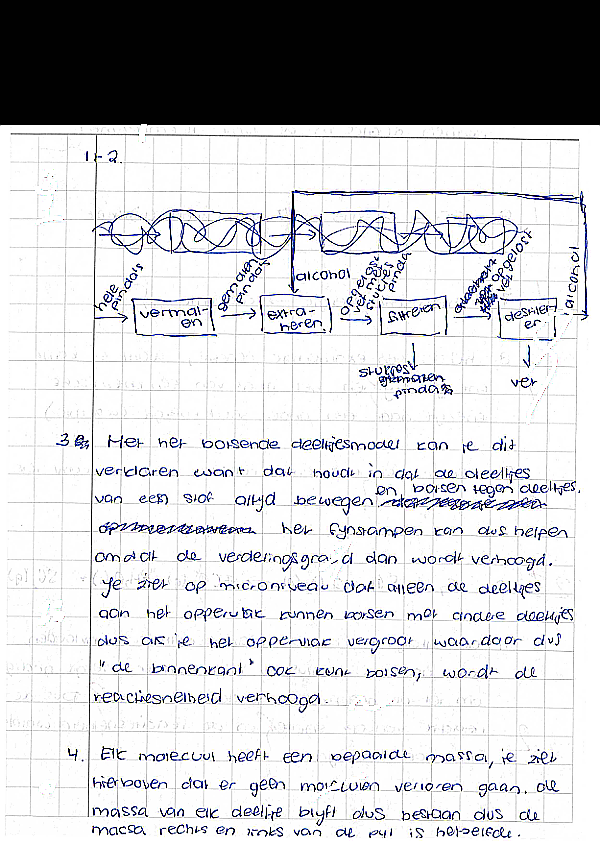 1+2.
alcohol
hele pindals
vermal-
en
gemalen pindas
extra-
heren
opgelost vet met stukjes pinda
filtreren
opgelost vet
destiler
er
alcohol
pinda
vet
3 Met het botsende deeltjesmodel kan je dit
verklaren want dat houdt in dat de deeltjes
van een stof altijd bewegen en botsen tegen deeltjes.
het fijnstampen kan dus helpen
omdat de verdelingsgraad dan wordt verhoogd.
Je ziet op microniveau dat alleen de deeltjes
aan het oppervlak kunnen botsen met andere deeltjes
dus als je het oppervlak vergroot waardoor dus
"de binnenkant" ook kunt botsen, wordt de
reactiesnelheid verhoogd.
4. Elk molecuul heeft een bepaalde massa, je ziet
hierboven dat er geen molculen verloren gaan, de
massa van elk deeltje blijft dus bestaan dus de
massa rechts en links van de pijl is hetzelfde.